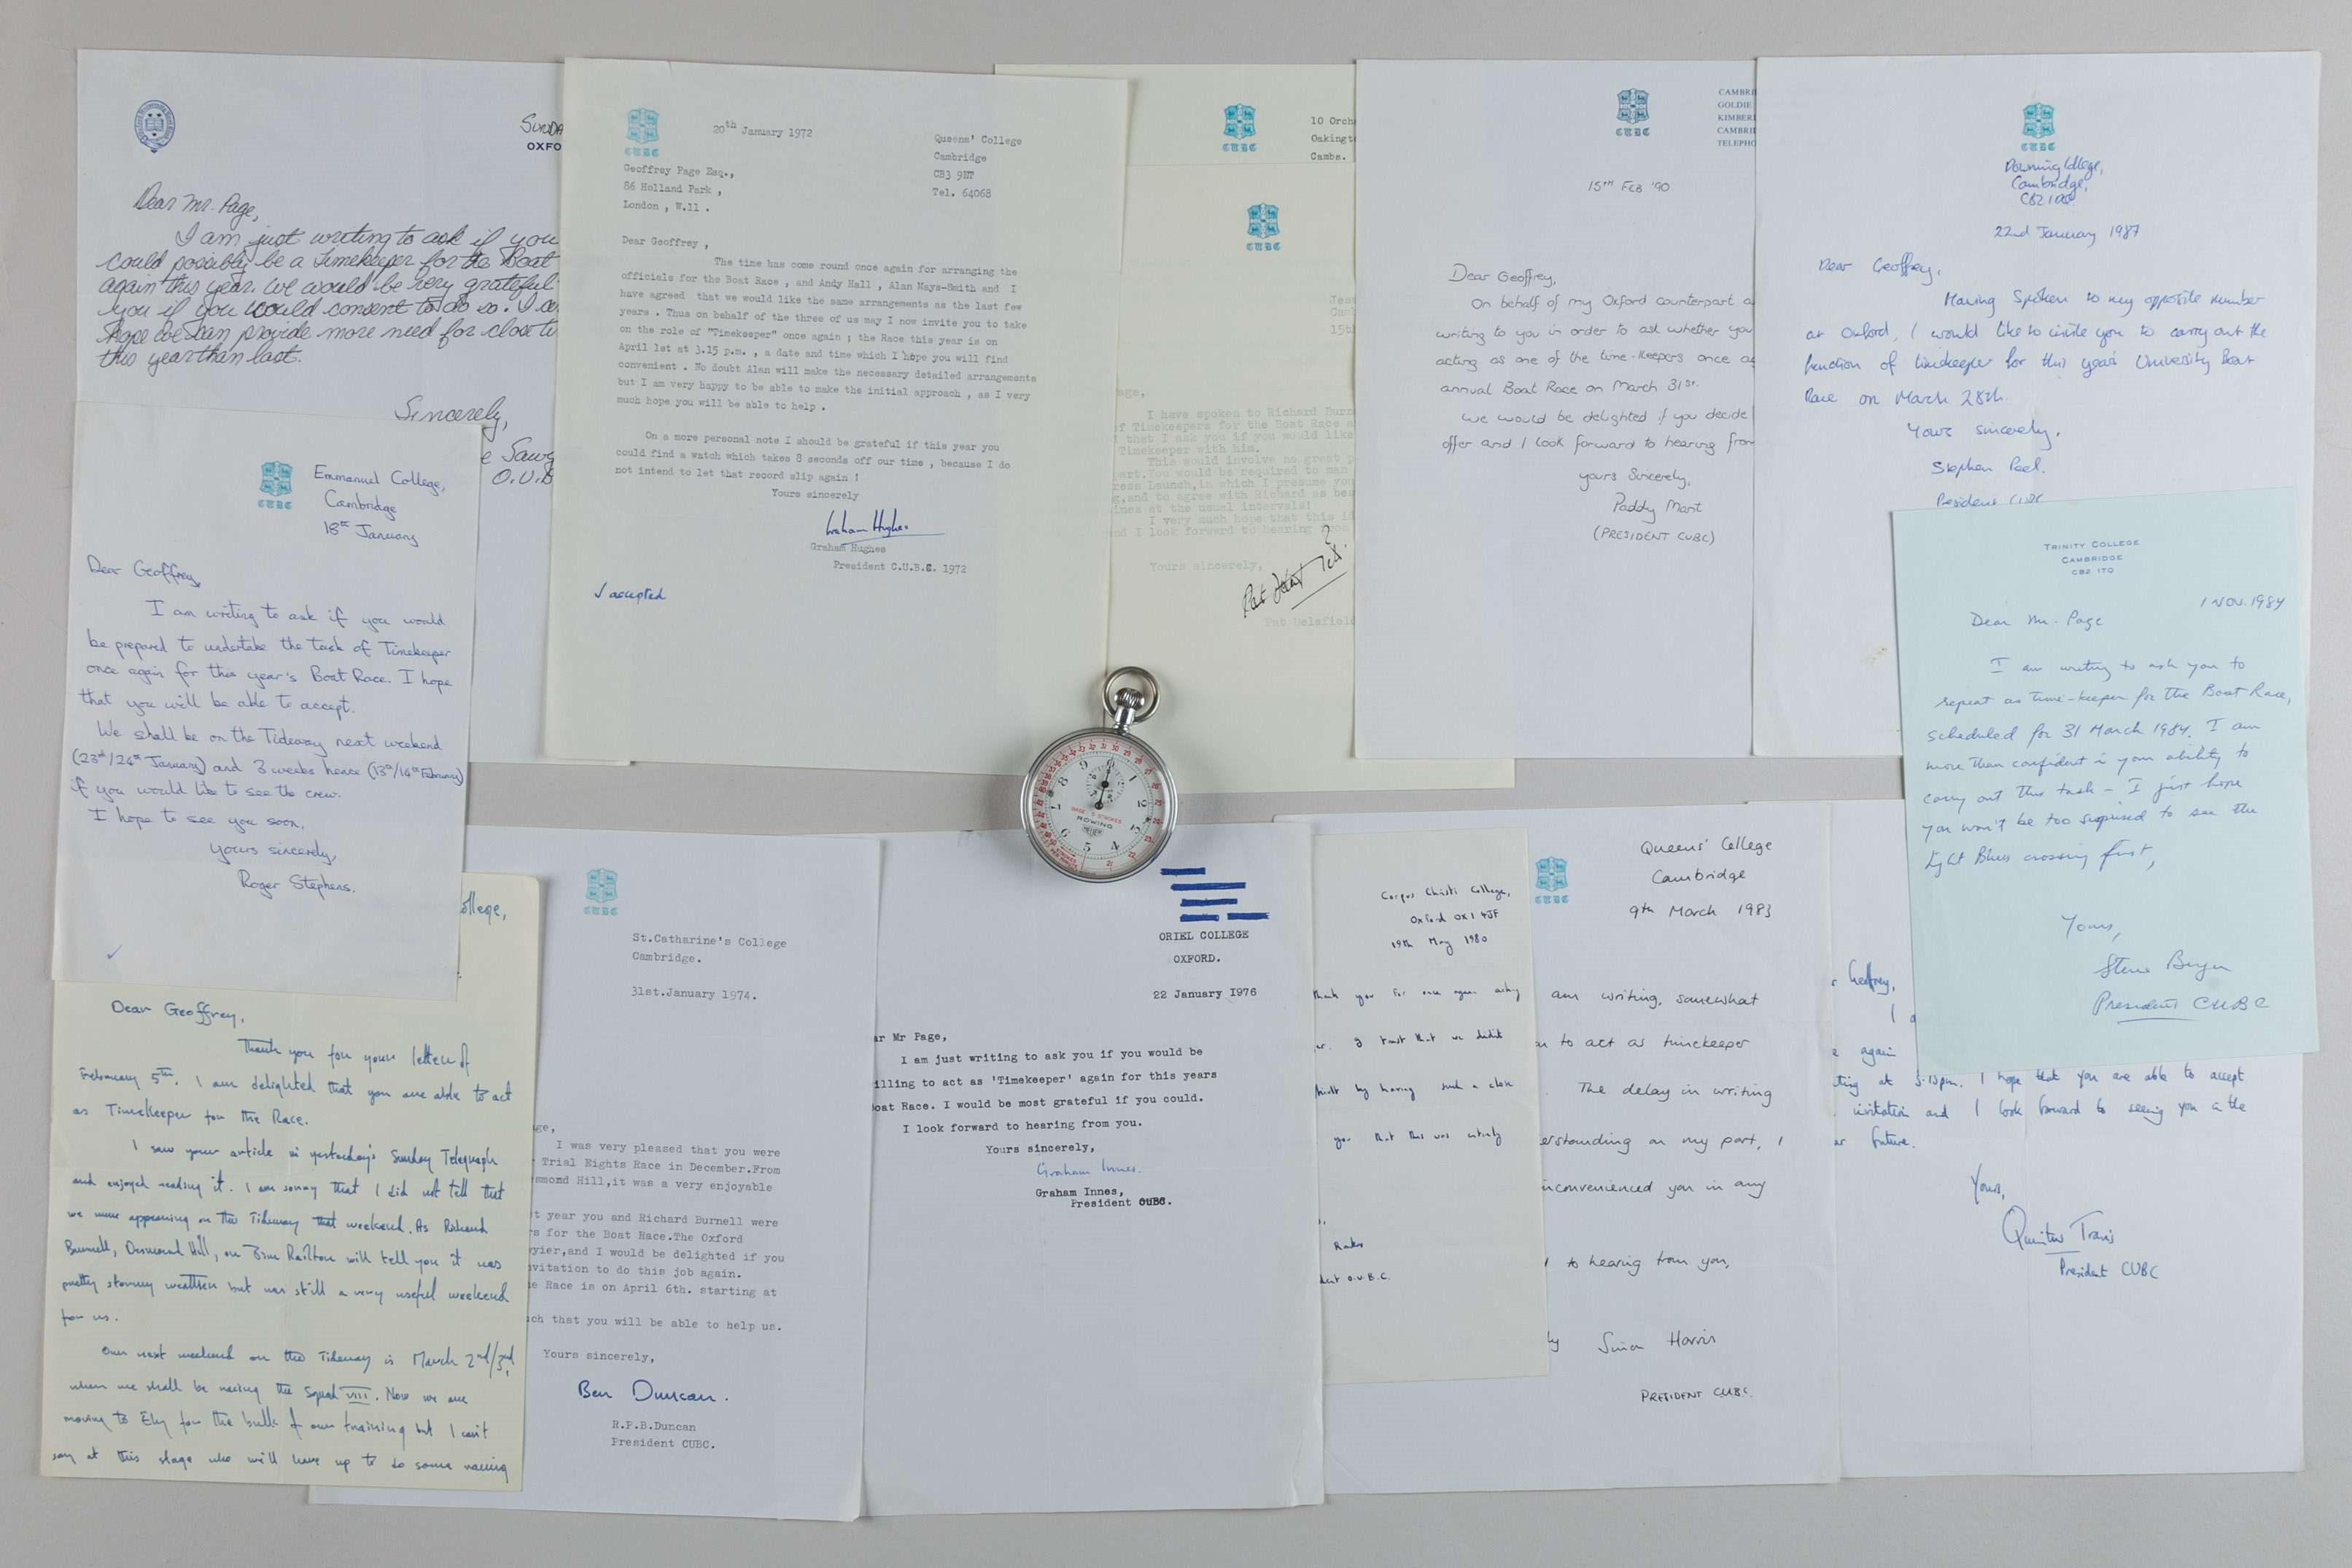 SUNDA
OXFO
Dear Mr. Page,
I am just writing to ask if you
could possibly be a Timekeeper for the Boat
again this year. We would be very grateful
you if you would consent to do so. I
hope we can provide more need for close
this year than last.
Sincerely,
O.U.B
CUBC
20th January 1972
Queens' College
Cambridge
CB3 9ET
Tel. 64068
Geoffrey Page Esq.,
86 Holland Park ,
London , W.11 .
Dear Geoffrey ,
The time has come round once again for arranging the
officials for the Boat Race , and Andy Hall , Alan Mays-Smith and I
have agreed that we would like the same arrangements as the last few
years . Thus on behalf of the three of us may I now invite you to take
on the role of "Timekeeper" once again ; the Race this year is on
April 1st at 3.15 p.m. , a date and time which I hope you will find
convenient . No doubt Alan will make the necessary detailed arrangements
but I am very happy to be able to make the initial approach , as I very
much hope you will be able to help .
On a more personal note I should be grateful if this year you
could find a watch which takes 8 seconds off our time , because I do
not intend to let that record slip again !
Yours sincerely
Graham Hughes
Graham Hughes
President C.U.B.C. 1972
√ accepted
CUBC
10 Orch
Oakingt
Cambs.
CUBC
Jes
Cam
15t
age,
I have spoken to Richard Burn
of Timekeepers for the Boat Race a
that I ask you if you would like
Timekeeper with him.
This would involve no great p
part.You would be required to man
ress Launch,in which I presume you
g,and to agree with Richard as bes
imes at the usual intervals!
I very much hope that this id
nd I look forward to hearing from
Yours sincerely,
Pat Delafield
CUBC
CAMBRI
GOLDIE
KIMBER
CAMBRI
TELEPHO
15TH FEB '90
Dear Geoffrey,
On behalf of my Oxford counterpart
writing to you in order to ask whether you
acting as one of the time-keepers once
annual Boat Race on March 31st.
We would be delighted if you decide
offer and I look forward to hearing from
yours Sincerely,
Paddy Mant
(PRESIDENT CUBC)
CUBC
Downing College,
Cambridge,
CB2 1DQ.
22nd January 1987
Dear Geoffrey,
Having spoken to my opposite number
at Oxford, I would like to invite you to carry out the
function of timekeeper for this year's University Boat
Race on March 28th.
Yours sincerely,
Stephen Peel.
President CUBC
TRINITY COLLEGE
CAMBRIDGE
CB2 1TQ
1 NOV. 1984
Dear Mr. Page
I am writing to ask you to
repeat as time-keeper for the Boat Race,
scheduled for 31 March 1984. I am
more than confident in your ability to
carry out this task - I just hope
you won't be too surprised to see the
Light Blues crossing first,
Yours,
Steve
President CUBC
CUBC
Emmanuel College,
Cambridge
18th January
Dear Geoffrey,
I am writing to ask if you would
be prepared to undertake the task of Timekeeper
once again for this year's Boat Race. I hope
that you will be able to accept.
We shall be on the Tideway next weekend
(23rd/24th January) and 3 weeks hence (13th/14th February)
if you would like to see the crew.
I hope to see you soon,
Yours sincerely,
Roger Stephens.
ollege,
Dear Geoffrey,
Thank you for your letter of
February 5th. I am delighted that you are able to act
as Timekeeper for the Race.
I saw your article in yesterday's Sunday Telegraph
and enjoyed reading it. I am sorry that I did not tell that
we were appearing on the Tideway that weekend. As Richard
Burnell, Desmond Hill, or Jim Railton will tell you it was
pretty stormy weather but was still a very useful weekend
for us.
Our next weekend on the Tideway is March 2nd/3rd,
when we shall be racing the Squad VIII. Now we are
moving to Ely for the bulk of our training but I can't
say at this stage who will have up to do some racing
CUBC
St.Catharine's College
Cambridge.
31st.January 1974.
ge,
I was very pleased that you were
Trial Eights Race in December.From
smond Hill,it was a very enjoyable
t year you and Richard Burnell were
rs for the Boat Race.The Oxford
yier,and I would be delighted if you
nvitation to do this job again.
e Race is on April 6th. starting at
ch that you will be able to help us.
Yours sincerely,
Ben Duncan.
R.P.B.Duncan
President CUBC.
ROWING
ORIEL COLLEGE
OXFORD.
22 January 1976
ar Mr Page,
I am just writing to ask you if you would be
illing to act as 'Timekeeper' again for this years
oat Race. I would be most grateful if you could.
I look forward to hearing from you.
Yours sincerely,
Graham Innes.
Graham Innes,
President OUBC.
Corpus Christi College,
Oxford OX1 4JF
19th May 1980
Thank you for once again acting
I trust that we didn't
by having such a close
you that this was entirely
dent O.U.B.C.
CUBC
Queens' College
Cambridge
9th March 1983
am writing, somewhat
to act as timekeeper
The delay in writing
erstanding on my part, I
inconvenienced you in any
to hearing from you,
Simon Harris
PRESIDENT CUBC.
Geoffrey,
I
again
ting at 3.15pm. I hope that you are able to accept
invitation and I look forward to seeing you in the
future.
Yours,
Quintus Travis
President CUBC